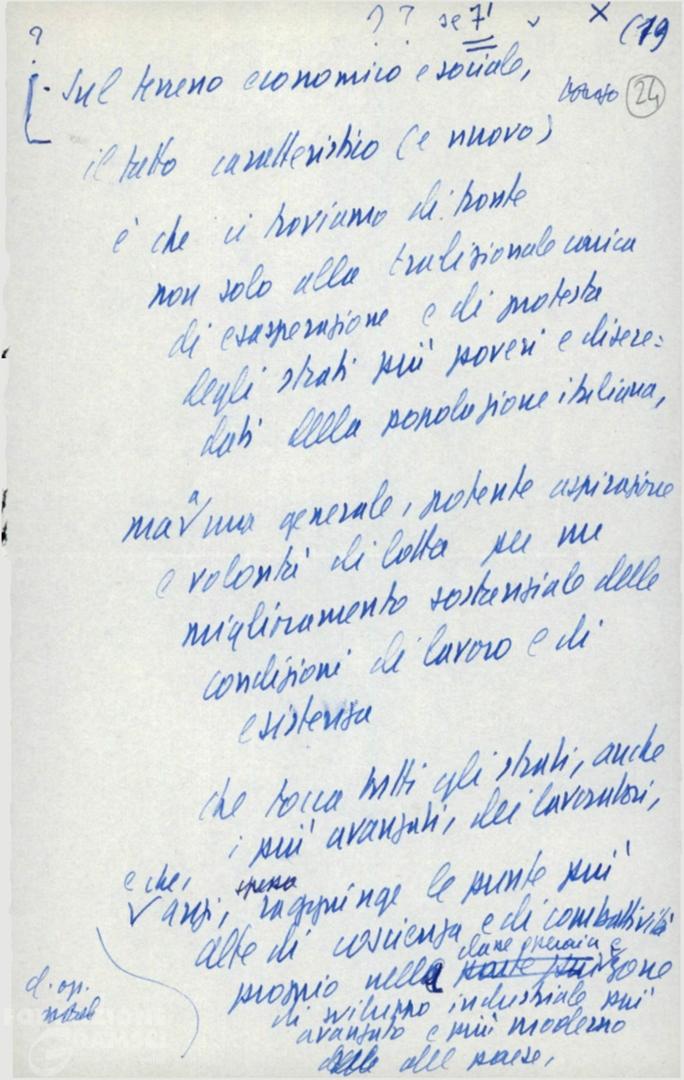 ? ? se 71 x (19
?
[- Sul terreno economico e sociale,
24
il tutto caratteristico (e nuovo)
è che ci troviamo di fronte
non solo alla tradizionale carica
di esasperazione e di protesta
degli strati più poveri e disere=
dati della popolazione italiana,
ma a una generale, potente aspirazione
e volontà di lotta per un
miglioramento sostanziale delle
condizioni di lavoro e di
esistenza
che tocca tutti gli strati, anche
i più avanzati, dei lavoratori,
e che, spesso
anzi, raggiunge le punte più
alte di coscienza e di combattività
classe operaia e
proprio nella zone
di sviluppo industriale più
avanzato e più moderno
del paese,